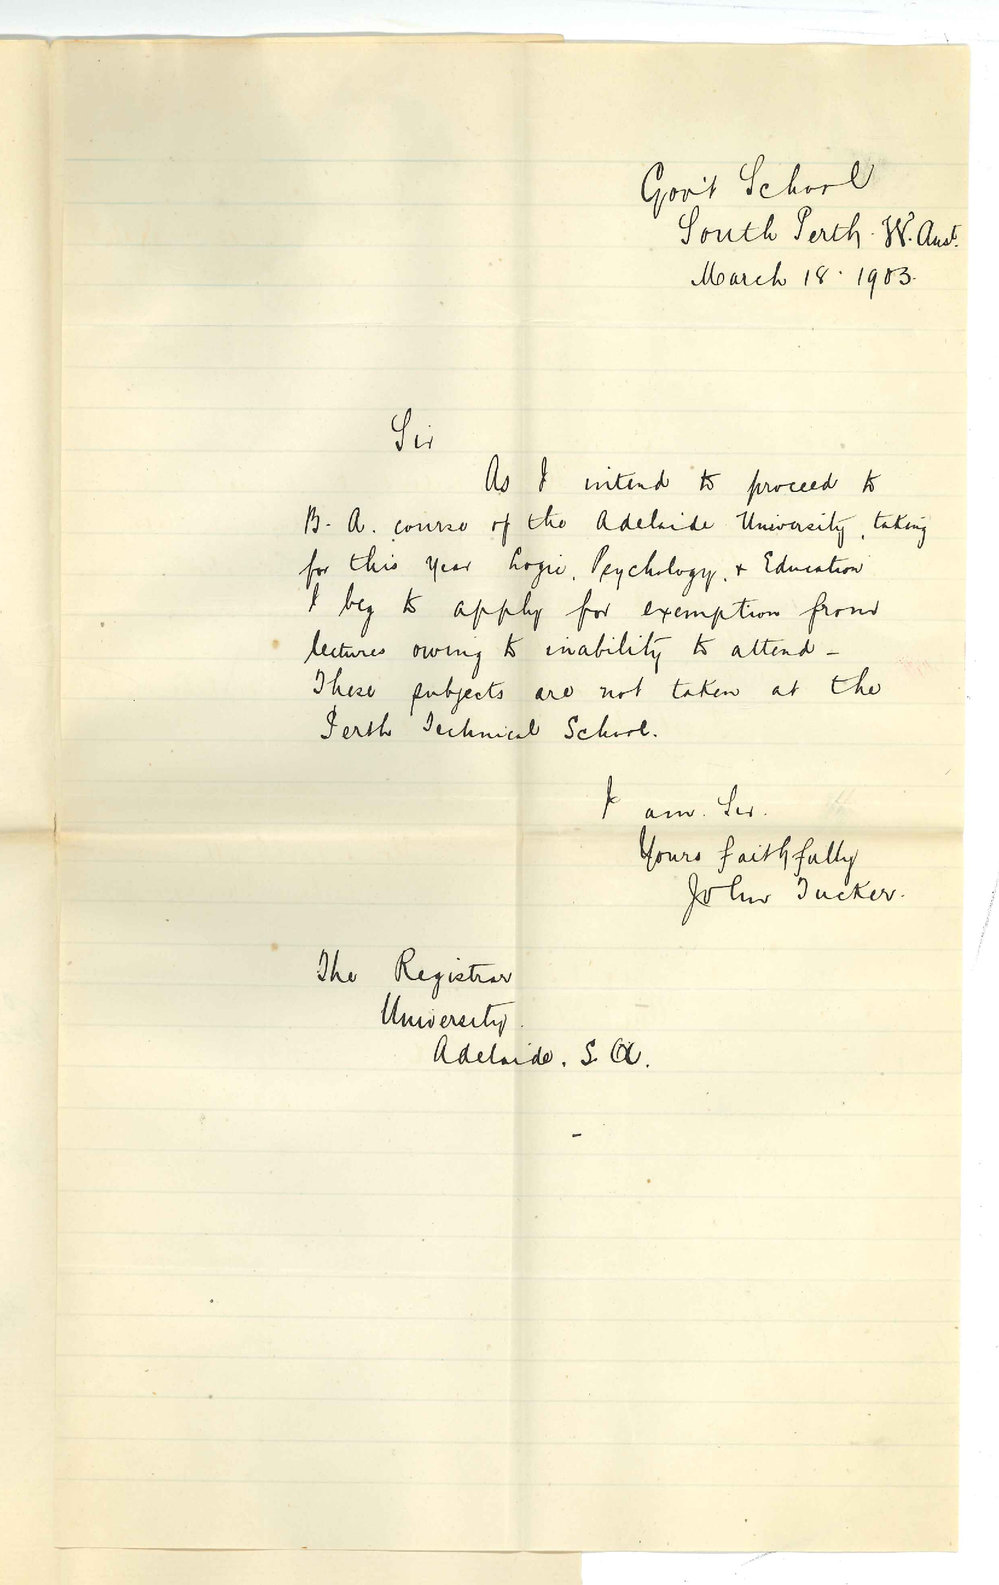 Gov't School
South Perth. W. Aust.
March 18. 1903.
Sir
As I intend to proceed to
B. A. course of the Adelaide University, taking
for this year Logic, Psychology, & Education
I beg to apply for exemption from
lectures owing to inability to attend –
These subjects are not taken at the
Perth Technical School.
I am. Sir.
Yours faithfully
John Tucker.
The Registrar
University.
Adelaide. S. A.